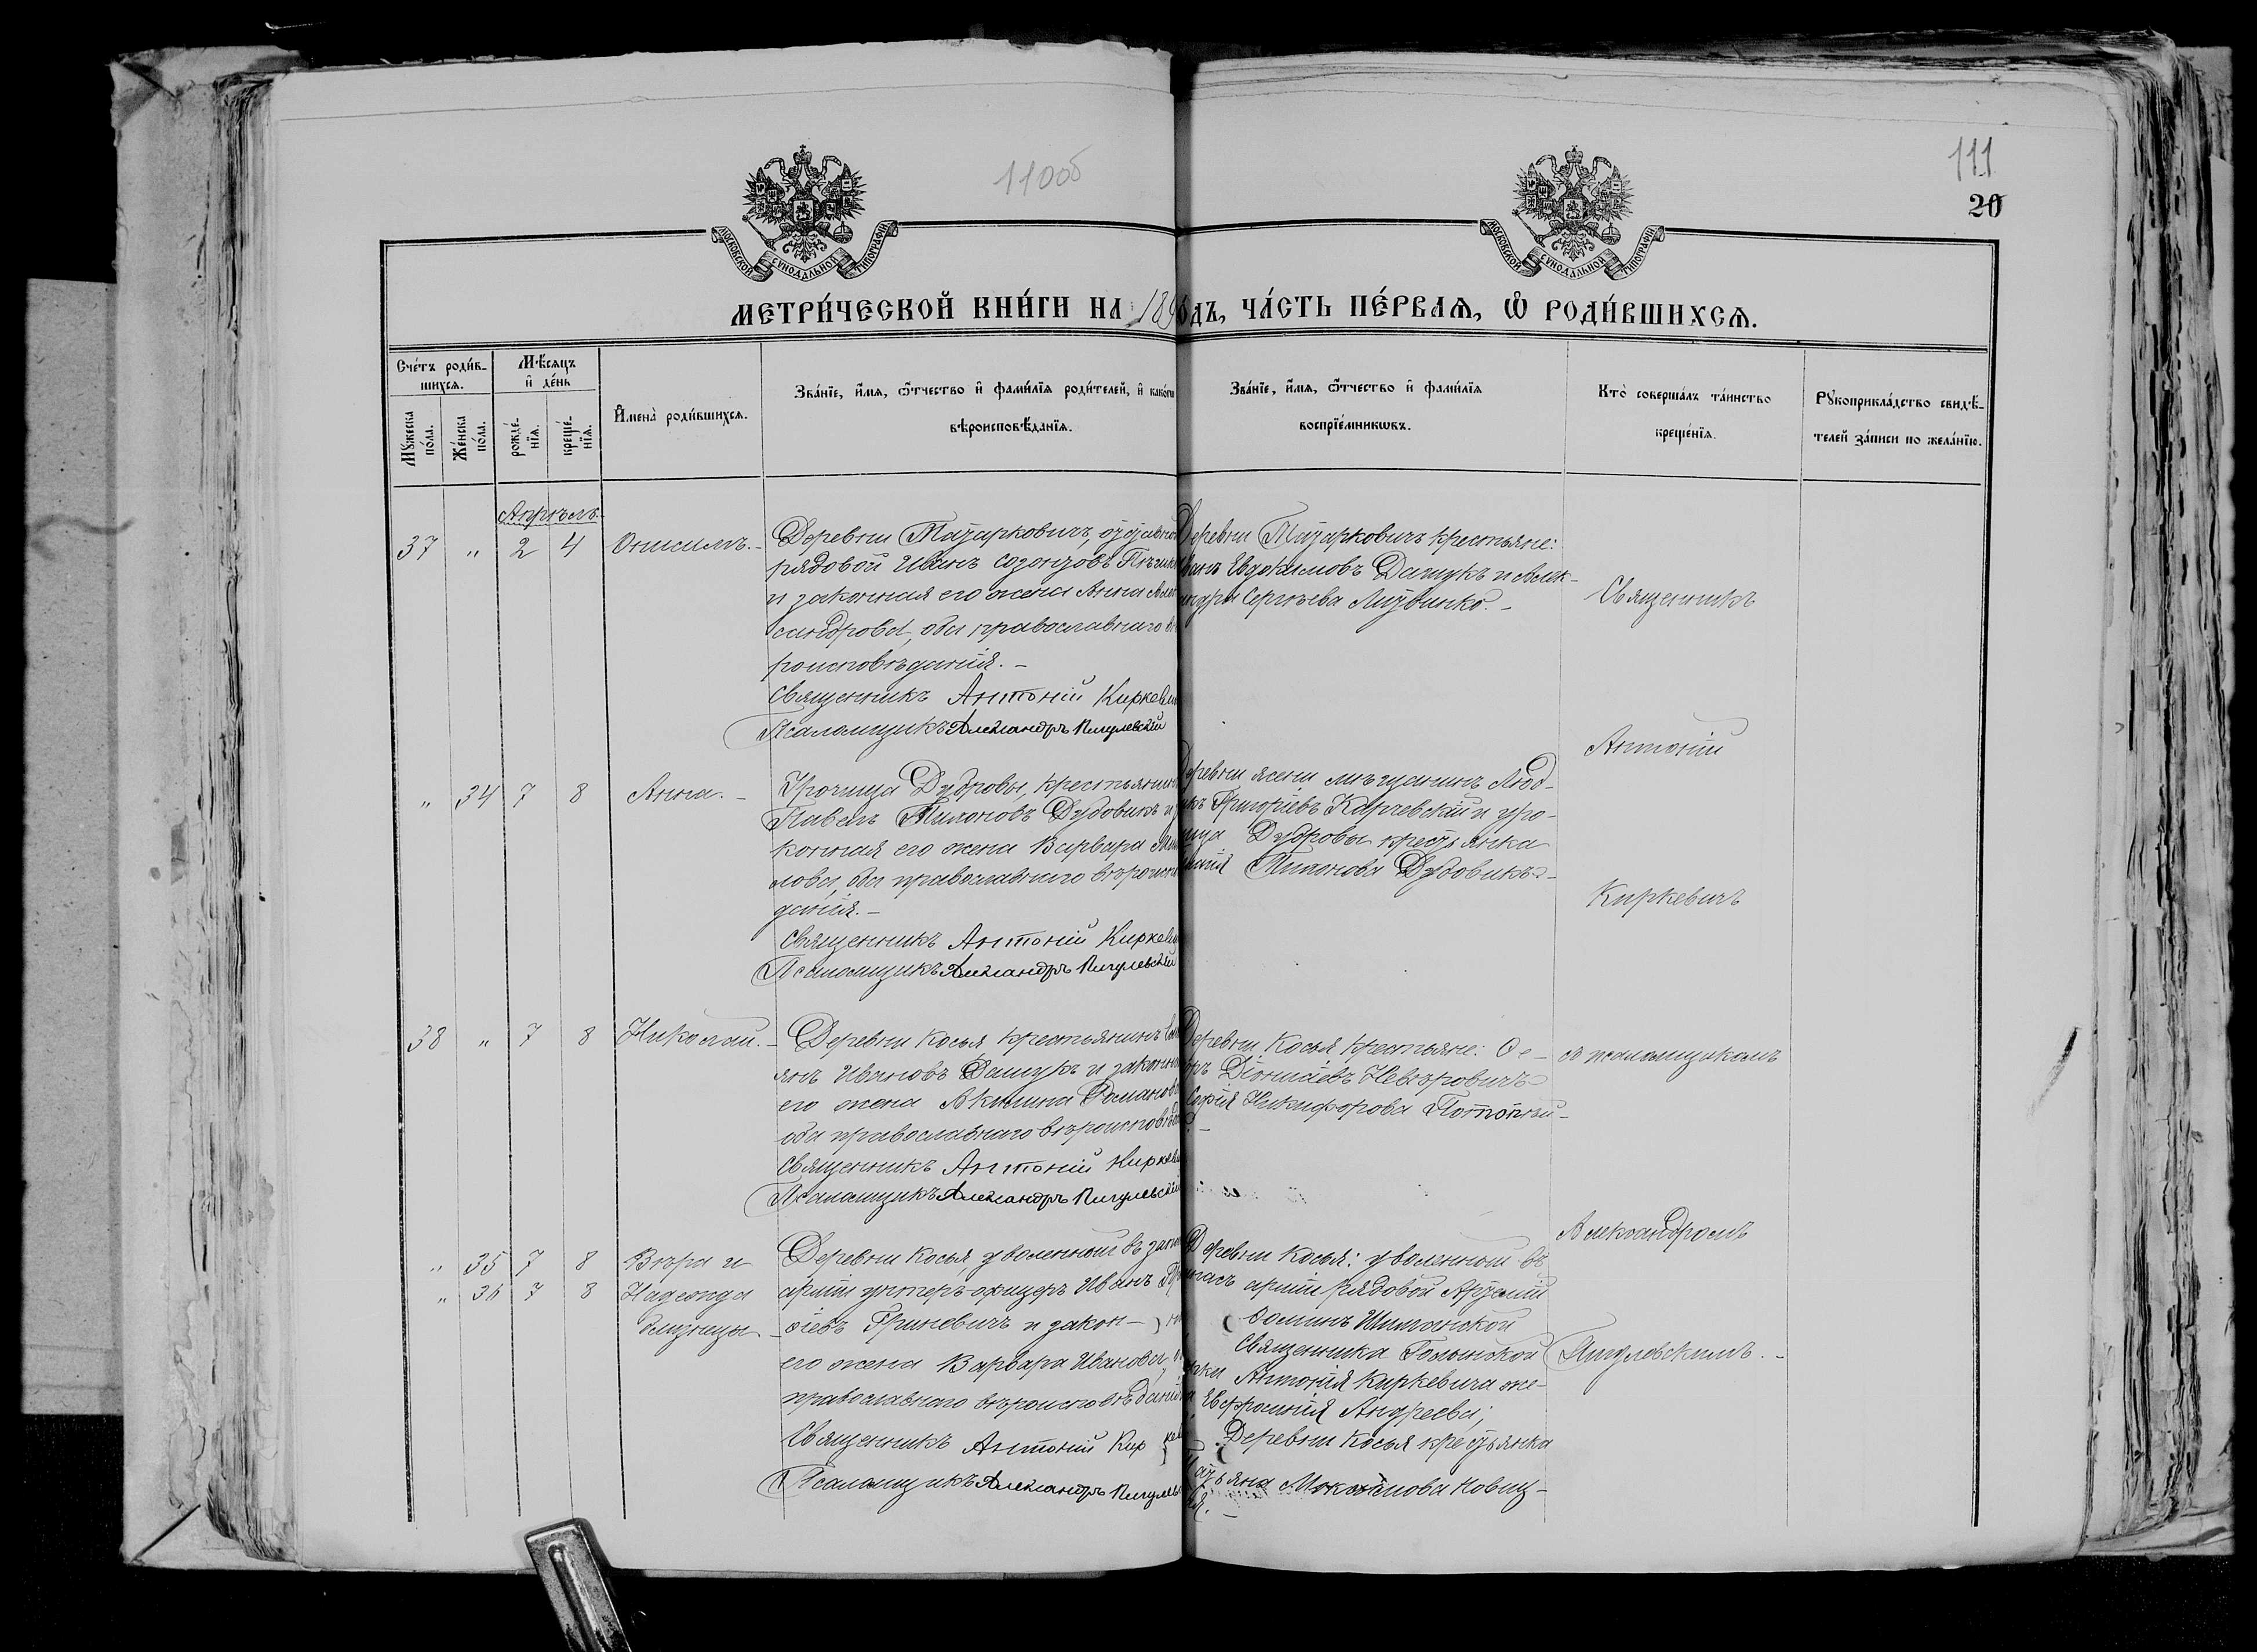 110об
111
20
МОСКОВСКОЙ СУНОДАЛЬНОЙ ТИПОГРАФІИ
МОСКОВСКОЙ СУНОДАЛЬНОЙ ТИПОГРАФІИ
МЕТРИ́ЧЕСКОЙ КНИ́ГИ НА 189 ОДЪ, ЧА́СТЬ ПЕ́РВАЯ, Ѡ҆ РОДИ́ВШИХСЯ.
Сче́тъ роди́в-
шихся.
Мѣ́сяцъ
и҆ де́нь
Мꙋ́жеска по́ла.
Же́нска по́ла.
рожде́-нїя.
креще́-нїя.
И҆мена̀ роди́вшихся.
Зва́нїе, и҆́мя, ѻ҆́тчество и҆ фами́лїя роди́телей, и҆ како́гѡ
вѣроисповѣ́данїя.
Зва́нїе, и҆́мя, ѻ҆́тчество и҆ фами́лїя
воспрїе́мникѡвъ.
Кто̀ соверша́лъ та́инство
креще́нїя.
Рꙋкоприкла́дство свидѣ́-
телей за́писи по жела́нїю.
Апрѣль.
37 " 2 4 Онисимъ.-
Деревни отставной
рядовой Иванъ Созонтовъ
и законная его жена Анна Алек
сандрова, оба православнаго вѣ
роисповѣданія.-
Священникъ Антоній Киркевич
Псаломщикъ Александръ Пигулевскій
Деревни крестьяне:
Иванъ Евдокимовъ Дашукъ и Алек-
сандра Сергѣева Литвинко.-
" 34 7 8 Анна.-
Урочища Дубровы, крестьянин
Павелъ Дубовикъ и за
конная его жена Варвара
лова, оба православнаго вѣроисповѣ
данія.-
Священникъ Антоній Киркевич
Псаломщикъ Александръ Пигулевскій
Деревни Ясени мѣщанинъ Люд-
викъ Григоріевъ Карчевскій и уро-
чища Дубровы крестьянка
Дубовикъ.-
38 " 7 8 Николай.-
Деревни Косья крестьянинъ
янъ Ивановъ Дашукъ и законная
его жена Акилина Романова
оба православнаго вѣроисповѣда
Священникъ Антоній Киркевич
Псаломщикъ Александръ Пигулевскій
Деревни Косья крестьяне: Ѳе-
Діонисіевъ Невѣровичъ
Никифорова
" 35 7 8 Вѣра и
" 36 7 8 Надежда
близнецы.-
Деревни Косья, уволенный въ запас
арміи унтеръ-офицеръ Иванъ
Гриневичъ и закон-
его жена Варвара Иванова,
православнаго вѣроисповѣданія
Священникъ Антоній Кир
Псаломщикъ Александръ Пигулев
Деревни Косья: уволенный въ
запасъ арміи рядовой
Священника Голынской
Антонія Киркевича же-
на Евфросинія Андреева;
Деревни Косья крестьянка
Татьяна Новиц-
кая.-
Священникъ
Антоній
Киркевичъ
съ псаломщикомъ
Александромъ
Пигулевскимъ.-